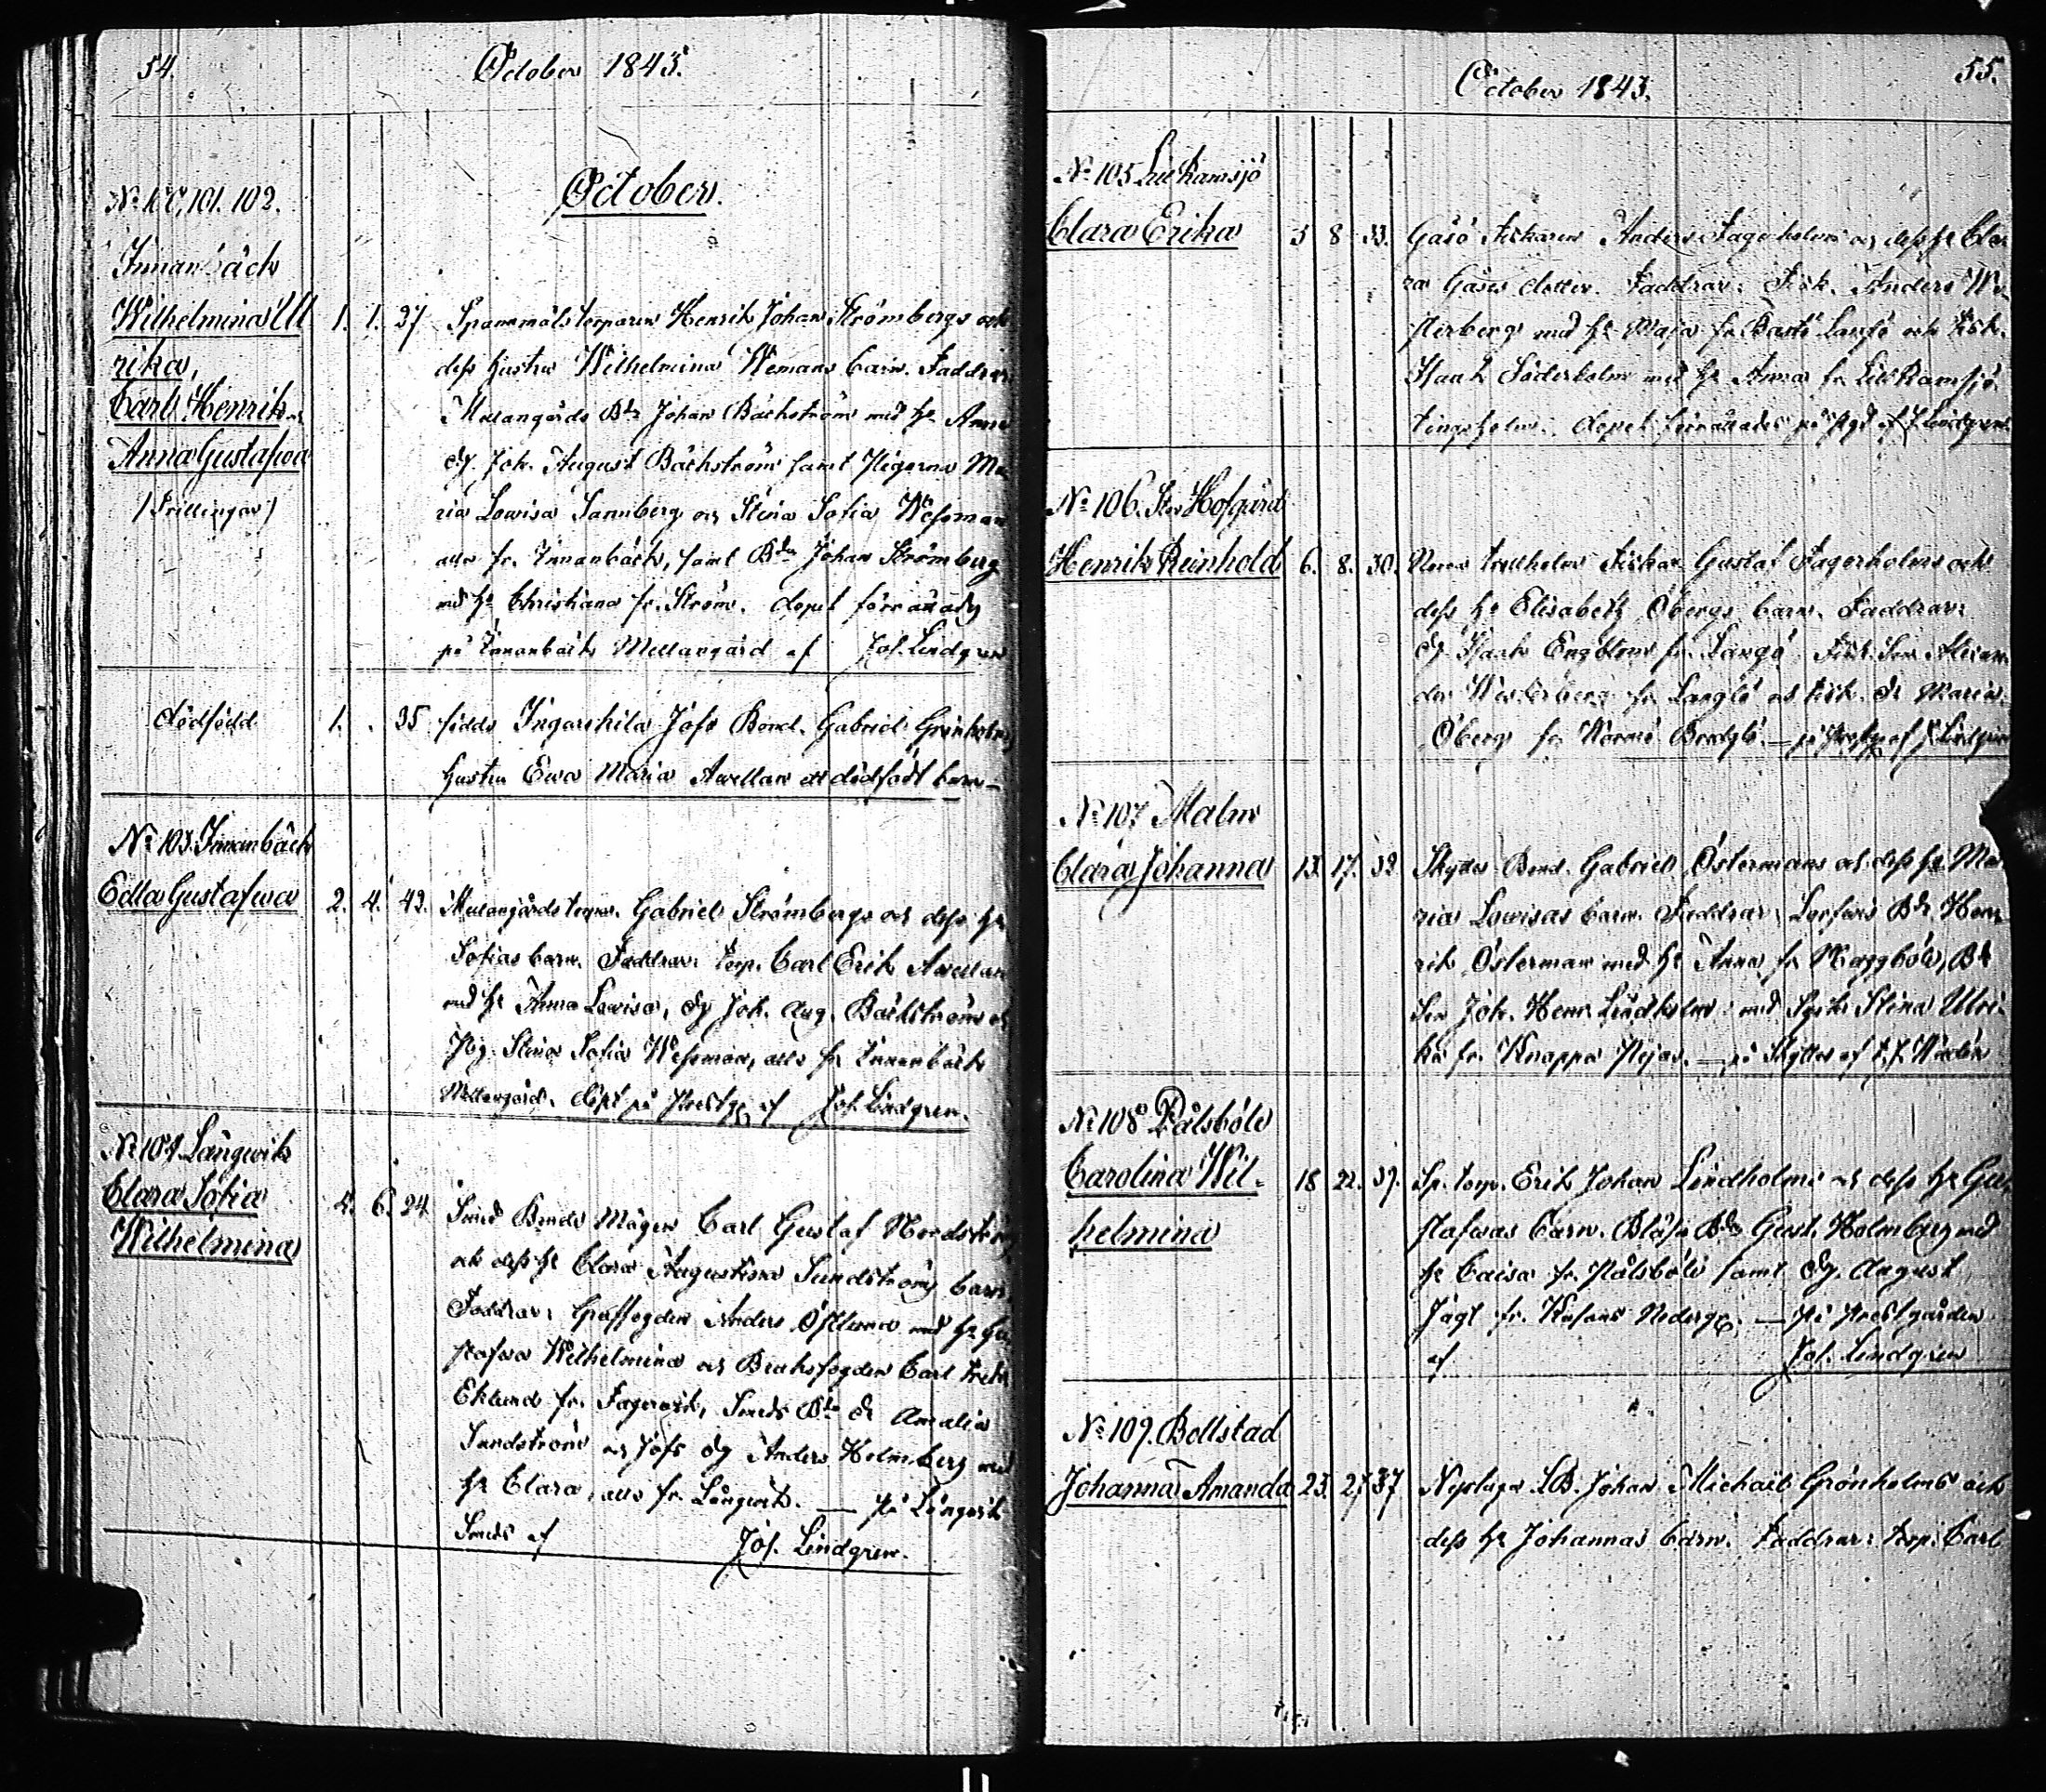 54.
October 1843.
October.
No 100, 101. 102.
Innanbäck
Wilhelmina Ul
rika,
Carl Henrik och
Anna Gustafwa
/Trillingar/
1. 1. 37
Spannmåls torparen Henrik Johan Strömbergs och
dess hustru Wilhelmina Wemans barn. Faddrar
Mellangårds Bd. Johan Bäckström med h. Anna
dg. Joh. August Bäckström samt Pigorna Ma
ria Lowisa Sannberg och Stina Sofia Wessman
alla fr. Innanbäck, samt Bdn Johan Strömberg
med h. Christiana fr. Ström. dopet förrättadt
på Innanbäck Mellangård af Joh. Lindgren
dödfödd
1. . 35
födde Ingarskila Jofs Bond. Gabriel Grönholms
hustru Ewa Maria Awellan ett dödfödt barn
No 103. Innanbäck
Edla Gustafwa
2. 4. 42.
Mellangårds torpar. Gabriel Strömbergs och dess h.
Sofias barn. Faddrar: torp. Carl Erik Awellan
med h. Anna Lowisa, dg Joh. Aug. Bäckström och
Pig. Stina Sofia Wessman, alla fr Innanbäck
Mellangård. döpt på Prestg. af Joh. Lindgren.
No 104 Långwik
Clara Sofia
Wilhelmina
4. 6. 24
Smeds Bonds Mågen Carl Gustaf Nordström
och dess h. Clara Augustina Sundströms barn
Faddrar: Anders Östlund med h. Gu
stafwa Wilhelmina och Bruksfogden Carl Fredr.
Eklund fr. Fagerwik, Smeds Bd. dr Amalia
Sundström och Jofs dg Anders Holmberg med
h. Clara, alla fr. Långwik. — på Långwik
Smeds af Joh. Lindgren.
October 1843.
55.
No 105 Lill Ramsjö
Clara Erika
3 8 33.
Gåsö Fiskaren Anders Fagerholms och dess h. Cla
ra Gåses dotter. Faddrar: Fisk. Anders We
sterberg med h. Maja fr. Bastö Långö och Fisk.
Isaak Söderholm med h. Anna fr Lill Ramsjö
tingsholm. dopet förrättades på Pgd af J. Lindgren
No 106. Stor Hofgård
Henrik Reinhold
6. 8. 30.
Norra trullholm Fiskar Gustaf Fagerholms och
dess h. Elisabeth Öbergs barn. Faddrar:
dg Isaak Engblom fr. Långö Fisk. Son Alexan
der Westerberg fr Långö och Fisk. dr Maria
Öberg fr Norrnö — på Prestg af J. Lindgren
No 107 Malm
Clara Johanna
13. 17. 32.
Skyttes Bond. Gabriel Östermans och dess h. Ma
ria Lowisas barn. Faddrar: Bd. Hen
rik Österman med h. Anna fr Maggböle, Bd.
Son Joh. Henr. Lindholm med Syster Stina Ulri
ka fr. Knappa Pejas. — på Skyttes af
No 108 Pålsböle
Carolina Wil-
helmina
18 22. 37.
Sp. torp. Erik Johan Lindholms och dess h. Gu
stafwas barn. Bdn Gust. Holmberg med
h. Caisa fr. Pålsböle samt dg. August
Jägt fr. Nederg. — På Prestgården
af Joh. Lindgren
No 109. Bollstad
Johanna Amanda
23. 27 37
Johan Michaël Grönholms och
dess h. Johannas barn. Faddrar: torp. Carl